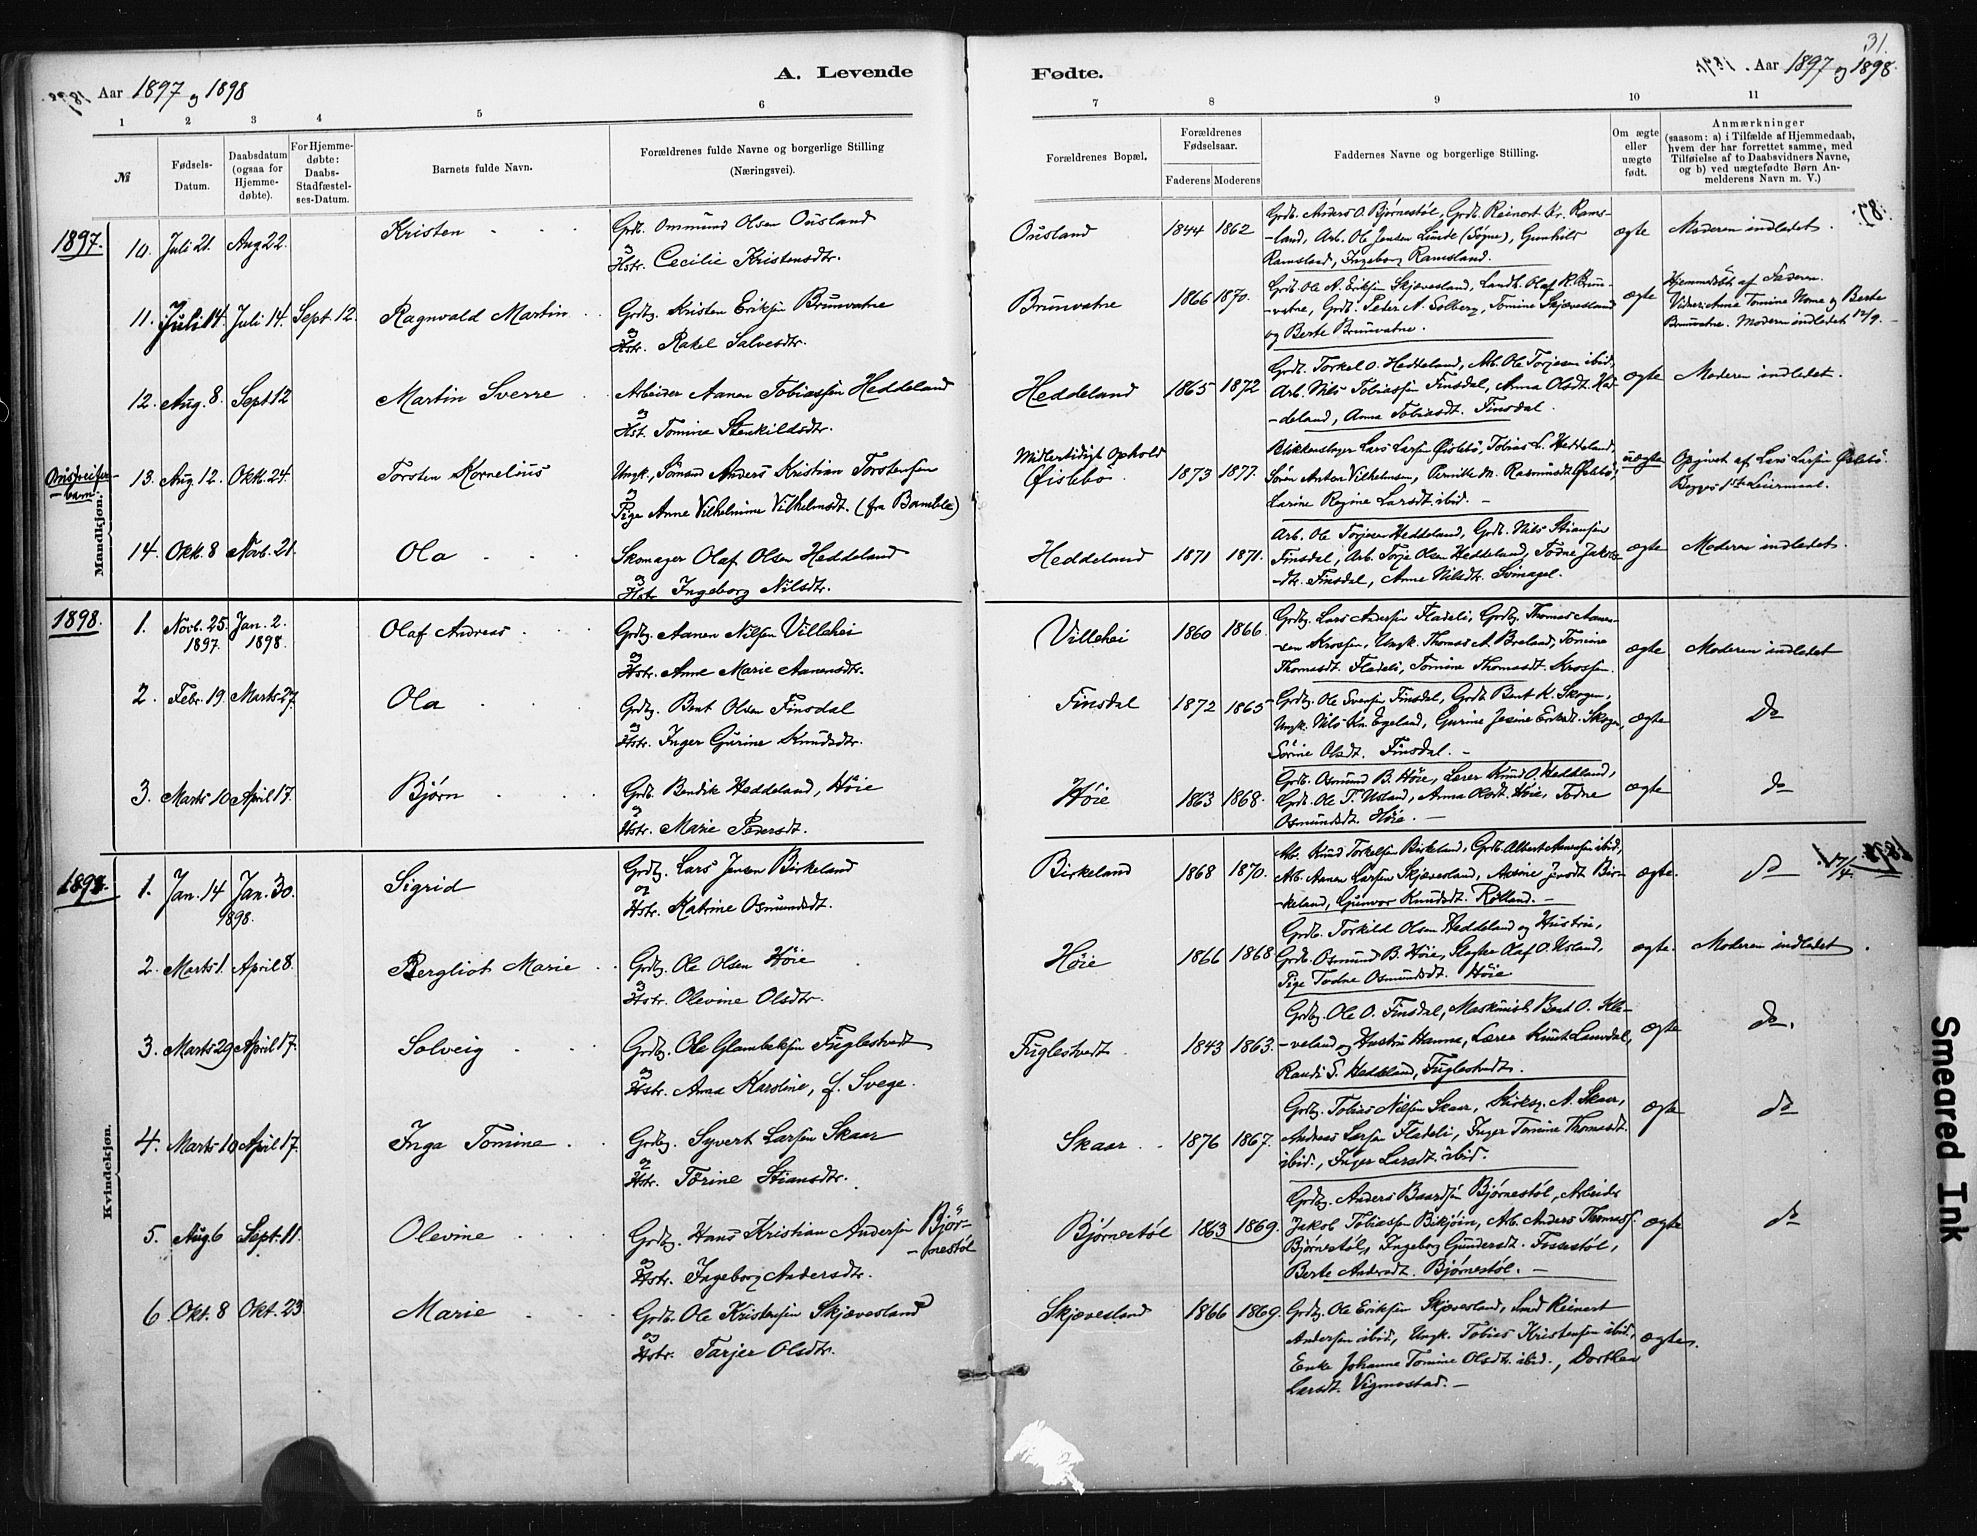 31.
Aar 1897 og 1898
A. Levende
Fødte.
Aar 1897 og 1898.
1 2 3 4 5 6 7 8 9 10 11
№
Fødsels-Datum.
Daabsdatum (ogsaa for Hjemmedøbte).
For Hjemmedøbte: Daabs-Stadfæstelses-Datum.
Barnets fulde Navn.
Forældrenes fulde Navne og borgerlige Stilling (Næringsvei).
Forældrenes Bopæl.
Forældrenes Fødselsaar.
Faderens Moderens
Faddernes Navne og borgerlige Stilling.
Om ægte eller uægte født.
Anmærkninger
(saasom: a) i Tilfælde af Hjemmedaab,
hvem der har forrettet samme, med
Tilføielse af to Daabsvidners Navne,
og b) ved uægtefødte Børn Anmelderens Navn m. V.)
Mandkjøn.
1897.
10. Juli 21. Aug 22. Kristen
Grdb. Ommund Olsen Ousland
og
Hstr. Cecilie Kristensdtr.
Ousland 1844 1862
Grdb. Anders O. Bjørnestøl, Grdb. Reinert Kr. Rams-
-land, Arb. Ole Jensen Lunde (Søgne), Gunhild
Ramsland, Ingeborg Ramsland.
ægte Moderen indledet.
11. Juli 14. Juli 14. Sept 12. Ragnvald Martin
Grdbg. Kristen Eriksen Brunvatne
og
Hstr. Rakel Salvesdtr.
Brunvatne 1866 1870.
Grdb. Ole A. Eriksen Skjævesland, Landb. Olaf K. Brun-
-vatne, Grdb. Peder A. Solberg, Tomine Skjævesland
og Berte Brunvatne.
ægte
Hjemmedøbt af Faderen.
Vidner: Anna Tomine Nome og Berte
Brunvatne. Moderen indledet 12/9.
12. Aug. 8. Sept 12 Martin Sverre
Arbeider Aanen Tobiassen Heddeland
og
Hst. Tomine Stenkildsdtr.
Heddeland 1865 1872
Grdb. Torkel O. Heddeland, Arb. Ole Torjesen ibid.,
Arb. Nils Tobiassen Finsdal, Anna Olsdt. Hed-
-deland, Anna Tobiasdt. Finsdal.
ægte Moderen indledet.
13. Aug 12. Okt. 24. Torsten Kornelius
Ungk., Sømand Anders Kristian Torstensen
og
Pige Anne Vilhelmine Vilhelmsdt. (fra Bamble)
Midlertidigt Ophold
Øislebø. 1873 1877.
Blikkenslager Lars Larsen Øislebø, Tobias L. Heddeland,
Søren Anton Vilhelmsen, Pernille M. Rasmusdt. Øislebø,
Larine Regine Larsdt. ibid.
uægte
Opgivet af Lars Larsen Øislebø.
Begges 1ste Leiermaal.
14. Okt. 8 Novb. 21. Ola
Skomager Olaf Olsen Heddeland
og
Hstr. Ingeborg Nilsdtr.
Heddeland 1871 1871.
Arb. Ole Torjesen Heddeland, Grdb. Nils Stiansen
Finsdal, Arb. Torje Olsen Heddeland, Todne Jakobs-
-dtr. Finsdal, Anne Nilsdtr.
ægte Moderen indledet.
1898.
1. Novb. 25. 1897. Jan. 2. 1898. Olaf Andreas
Grdbg. Aanen Nilsen Villehei
og
Hstr. Anne Marie Aanensdtr.
Villehei 1860 1866.
Grdbg. Lars Andersen Fladeli, Grdbg. Thomas Aanen-
-sen Krossen, Ungk. Thomas A. Breland, Tomine
Thomasdt. Fladeli, Tomine Thomasdt. Krossen.
ægte Moderen indledet
2. Febr. 19. Marts 27. Ola
Grdbg. Bent Olsen Finsdal
og
Hstr. Inger Gurine Knudsdtr.
Finsdal 1872 1865
Grdbg. Ole Svensen Finsdal, Grdb. Bent K. Skogen,
Ungk. Nils Kn. Egeland, Gurine Jesine Eriksdt. Skogen,
Sørine Olsdt. Finsdal.
ægte do
3. Marts 10 April 17. Bjørn
Grdb. Bendik Heddeland, Høie
og
Hstr. Marie Pedersdt.
Høie 1863 1868.
Grdb. Osmund B. Høie, Lærer Knud O. Heddeland,
Grdb. Ole T. Usland, Anna Olsdt. Høie, Todne
Osmundsdt. Høie.
ægte do
Kvindekjøn.
1898.
1. Jan. 14 Jan. 30. 1898. Sigrid
Grdbg. Lars Jensen Birkeland
og
Hstr. Katrine Osmundsdt.
Birkeland 1868 1870.
Arb. Knud Torkelsen Birkeland, Grdb. Albert Aanesen ibid,
Arb. Aanen Larsen Skjævesland, Axeline Jensdt. Bir-
-keland, Gunvor Knudsdt. Røiland.
ægte. do 17/4.
2. Marts 1. April 8. Bergliot Marie
Grdbg. Ole Olsen Høie
og
Hstr. Olevine Olsdtr.
Høie 1866 1868
Grdb. Torkild Olsen Heddeland og Hustru,
Grdb. Osmund B. Høie, Olaf O. Usland,
Pige Todne Osmundsdt. Høie
ægte. Moderen indledet.
3. Marts 29 April 17. Solveig
Grdbg. Ole Glambeksen Fuglestvedt
og
Hstr. Anna Karoline, f. Svege.
Fuglestvedt. 1843 1863.
Grdbg. Ole O. Finsdal, Maskinist Bent O. Kle-
-veland og Hustru Hanna, Lærer Knut Lauvdal,
Randi S. Heddeland, Fuglestvedt.
ægte do.
4. Marts 10 April 17. Inga Tomine
Grdbg. Syvert Larsen Skaar
og
Hstr. Torine Stiansdtr.
Skaar 1876 1867.
Grdbg. Tobias Nilsen Skaar, Kirkesg. A. Skaar,
Andreas Larsen Fladeli, Inger Tomine Thomasdt.
ibid., Inger Larsdt. ibid.
ægte do
5. Aug 6 Sept. 11. Olevine
Grdbg. Hans Kristian Andersen Bjør-
-nestøl
og
Hstr. Ingeborg Andersdtr.
Bjørnestøl 1863 1869.
Grdbg. Anders Baardsen Bjørnestøl, Arbeider
Jakob Tobiassen Birkjoin, Arb. Anders Thomass.
Bjørnestøl, Ingeborg Gundersdt. Fossestøl,
Berte Andersdt. Bjørnestøl.
ægte do
6. Okt. 8 Okt. 23. Marie
Grdb. Ole Kristensen Skjævesland
og
Hstr. Tarjer Olsdtr.
Skjævesland 1866 1869.
Grdbg. Ole Eriksen Skjævesland, Smed Reinert
Andersen ibid, Ungk. Tobias Kristensen ibid.,
Enke Johanne Tomine Olsdt. ibid., Dorthea
Larsdt. Vigmostad.
ægte.
Smeared Ink